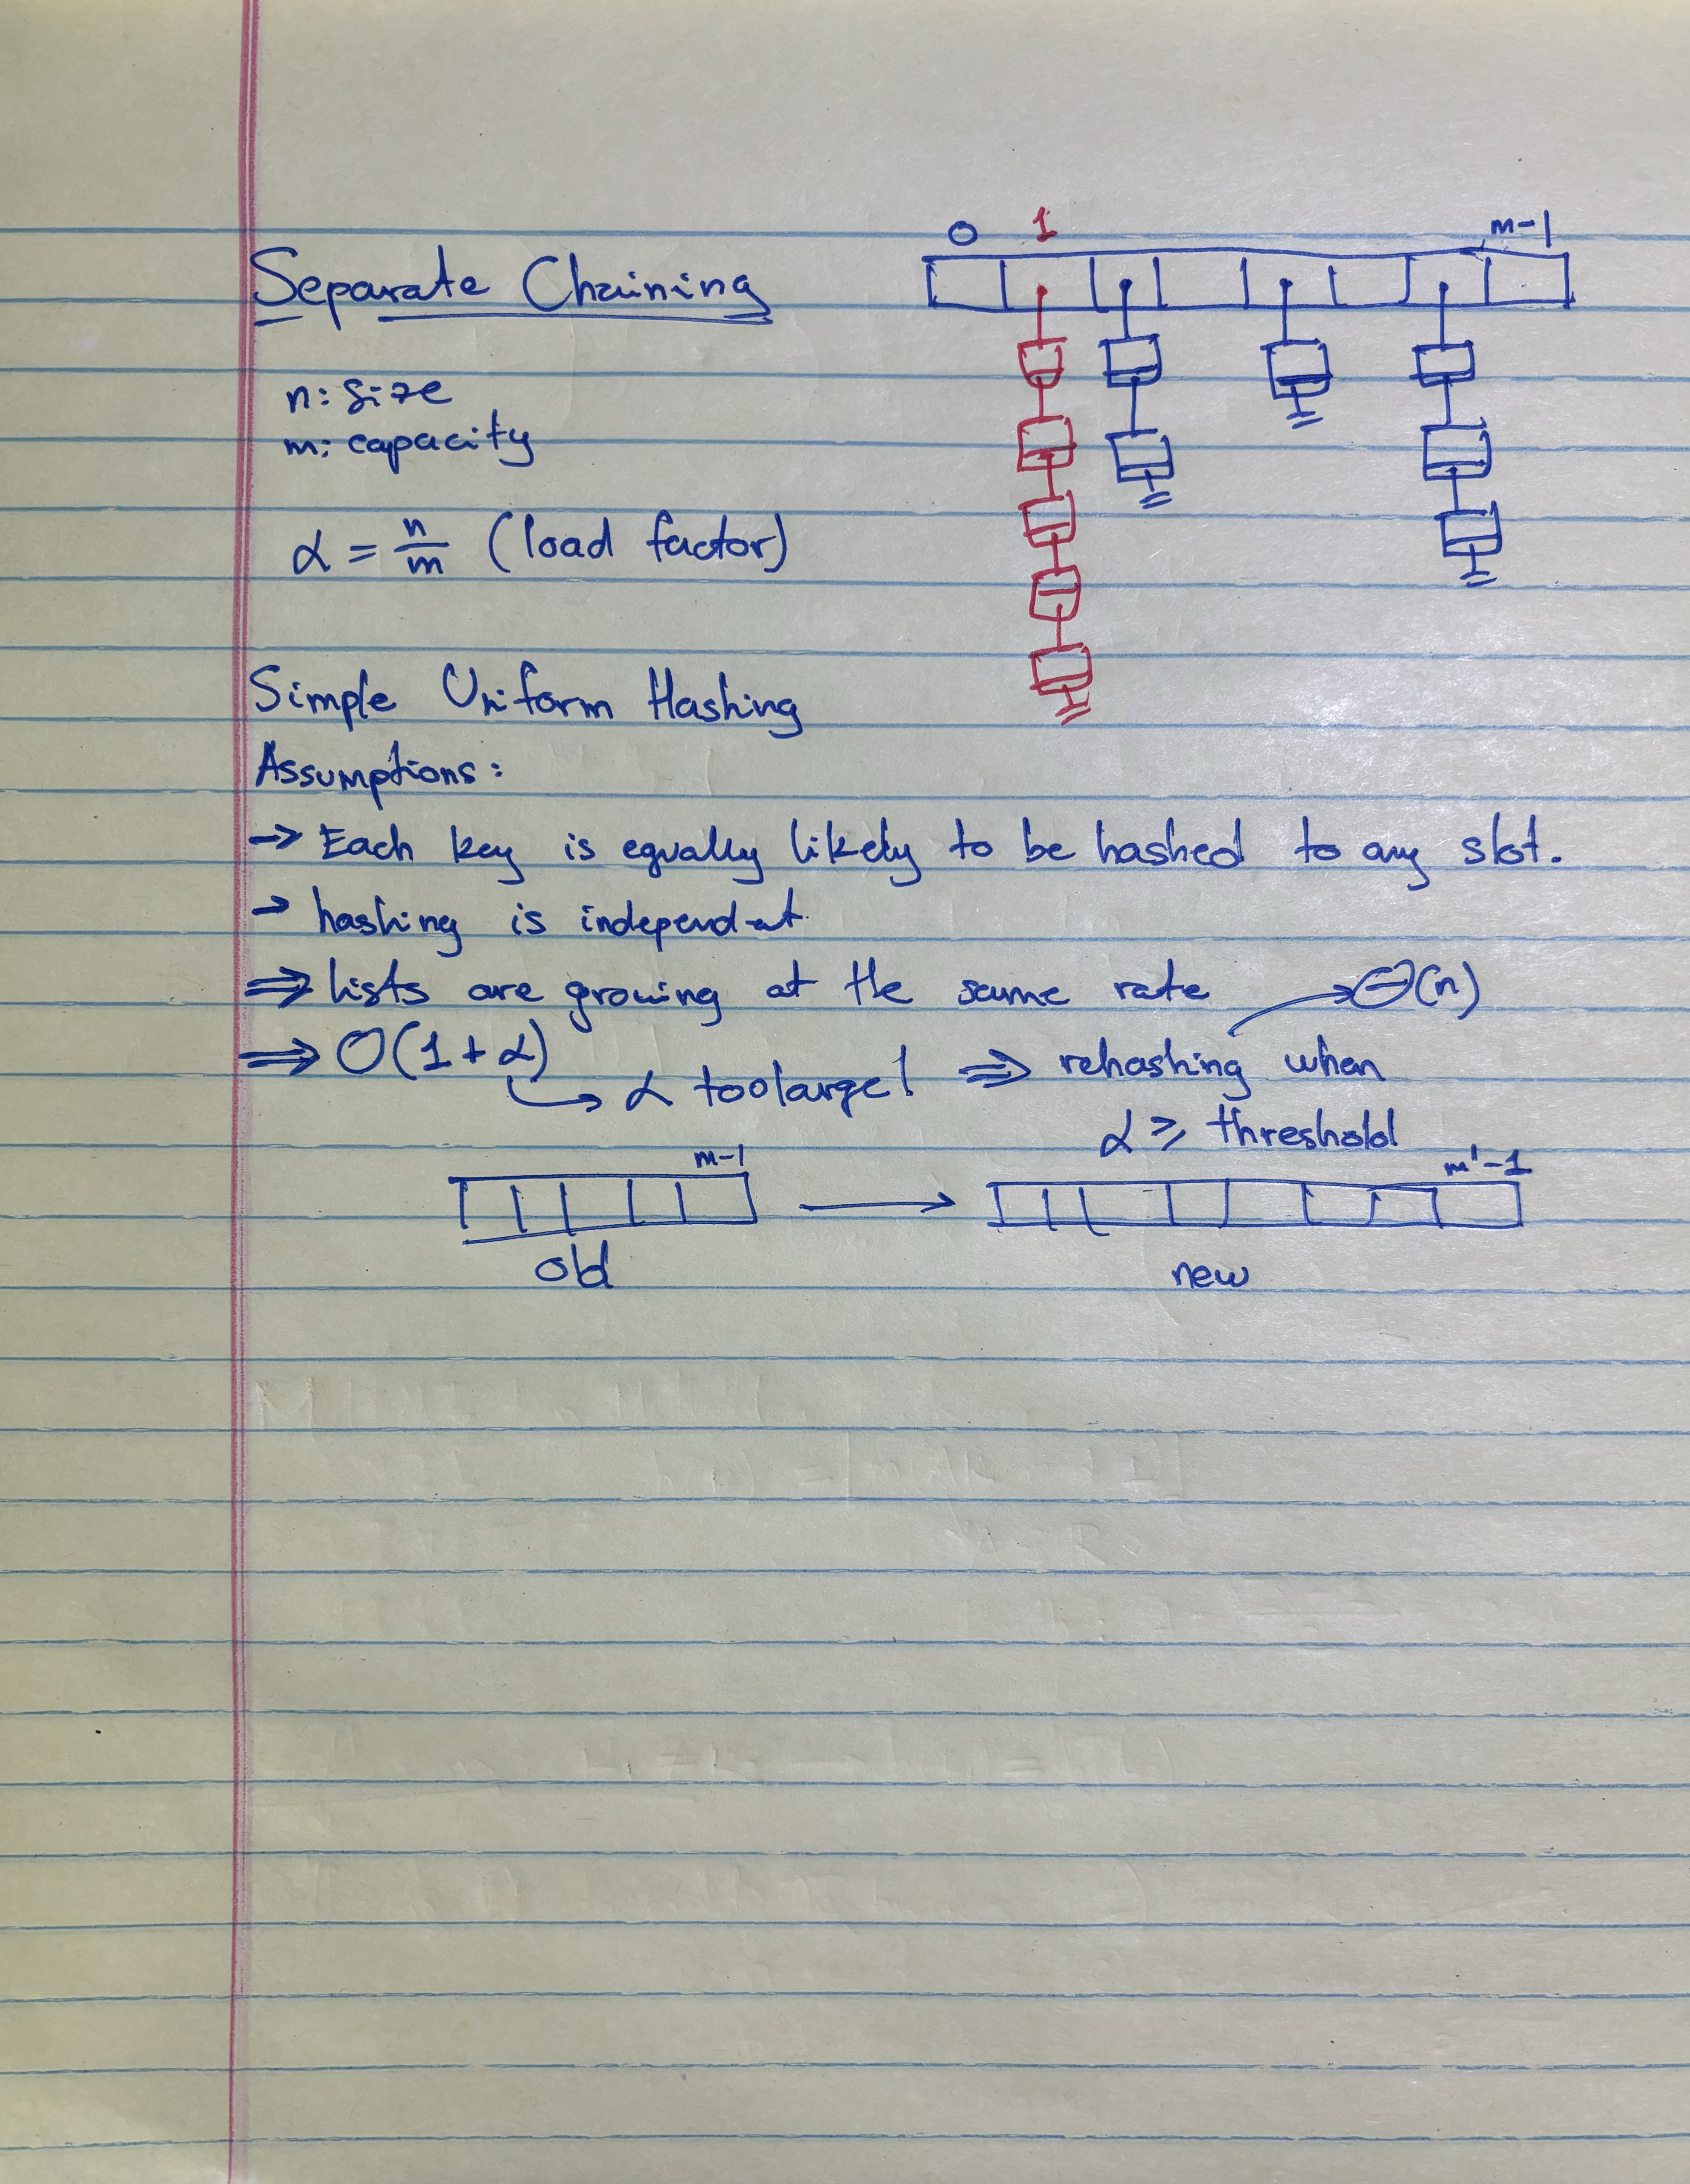 0 1 m-1
Separate Chaining
n: size
m: capacity
α = n/m (load factor)
Simple Uniform Hashing
Assumptions:
→ Each key is equally likely to be hashed to any slot.
→ hashing is independent
⇒ lists are growing at the same rate → Θ(n)
⇒ O(1 + α)
↳ α too large! ⇒ rehashing when
α ≥ threshold
m-1 m'-1
old new